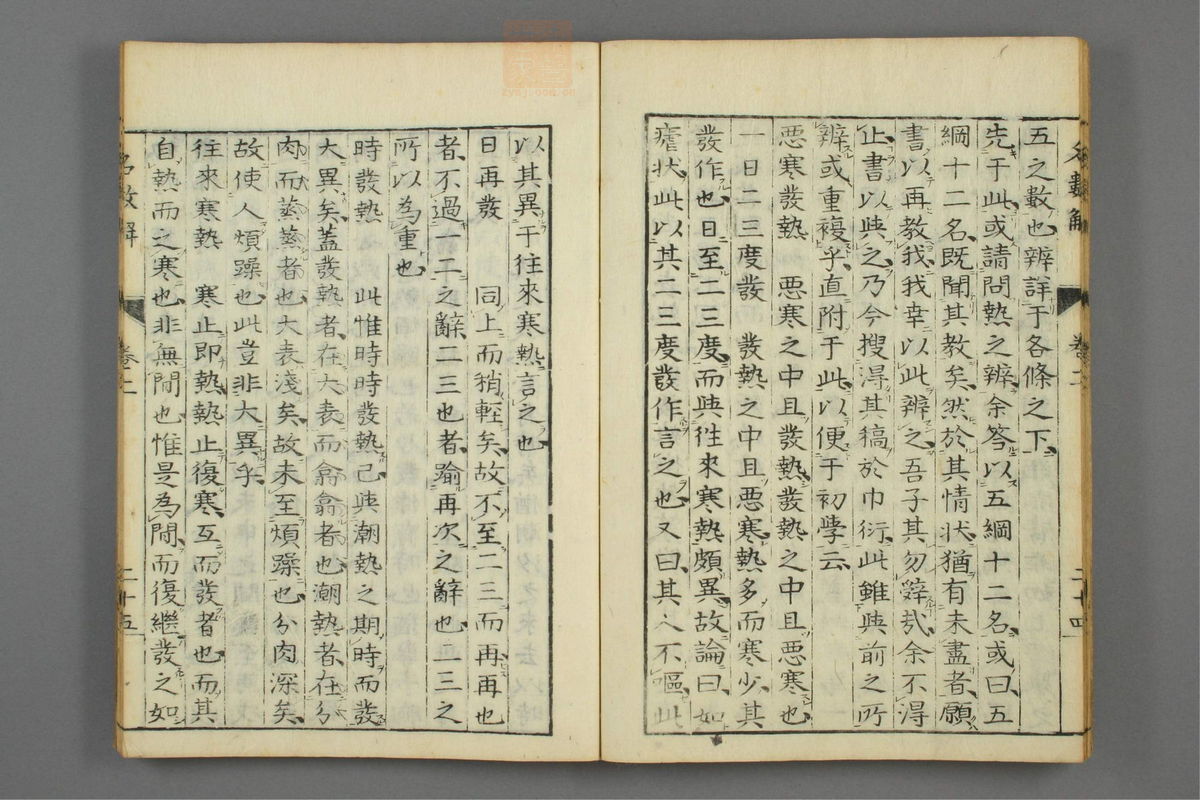 五之數也辨詳于各條之下
先于此或請問熱之辨余答以五綱十二名或曰五
綱十二名既聞其教矣然於其情狀猶有未盡者願
書以再教我我幸以此辨之吾子其勿辭哉余不得
止書以與之乃今搜得其稿於巾衍此雖與前之所
辨或重複乎直附于此以便于初學云
惡寒發熱　惡寒之中且發熱發熱之中且惡寒也
一日二三度發　發熱之中且惡寒熱多而寒少其
發作也日至二三度而與往來寒熱頗異故論曰如
瘧狀此以其二三度發作言之也又曰其人不嘔此
名數解　卷上　二十四
以其異于往來寒熱言之也
日再發　同上而稍輕矣故不至二三而再再也
者不過一二之辭二三也者踰再次之辭也二三之
所以為重也
時發熱　此惟時時發熱已與潮熱之期時而發
大異矣蓋發熱者在大表而翕翕者也潮熱者在分
肉而蒸蒸者也大表淺矣故未至煩躁也分肉深矣
故使人煩躁也此豈非大異乎
往來寒熱　寒止即熱熱止復寒互而發者也而其
自熱而之寒也非無間也惟是為間而復繼發之如
名數解　卷上　二十五
zysj.com.cn